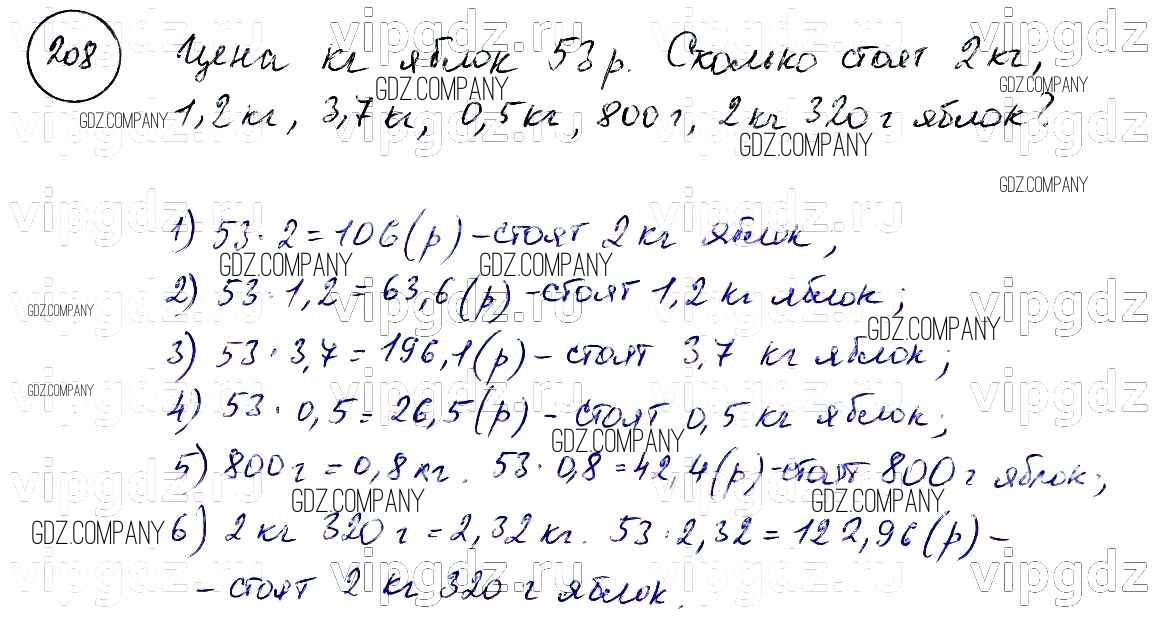 208 Цена кг яблок 53 р. Сколько стоят 2 кг,
1,2 кг, 3,7 кг, 0,5 кг, 800 г, 2 кг 320 г яблок?
1) 53 · 2 = 106 (р) - стоят 2 кг яблок;
2) 53 · 1,2 = 63,6 (р) - стоят 1,2 кг яблок;
3) 53 · 3,7 = 196,1 (р) - стоят 3,7 кг яблок;
4) 53 · 0,5 = 26,5 (р) - стоят 0,5 кг яблок;
5) 800 г = 0,8 кг. 53 · 0,8 = 42,4 (р) - стоят 800 г яблок;
6) 2 кг 320 г = 2,32 кг. 53 · 2,32 = 122,96 (р) -
- стоят 2 кг 320 г яблок.
vipgdz.ru
GDZ.COMPANY